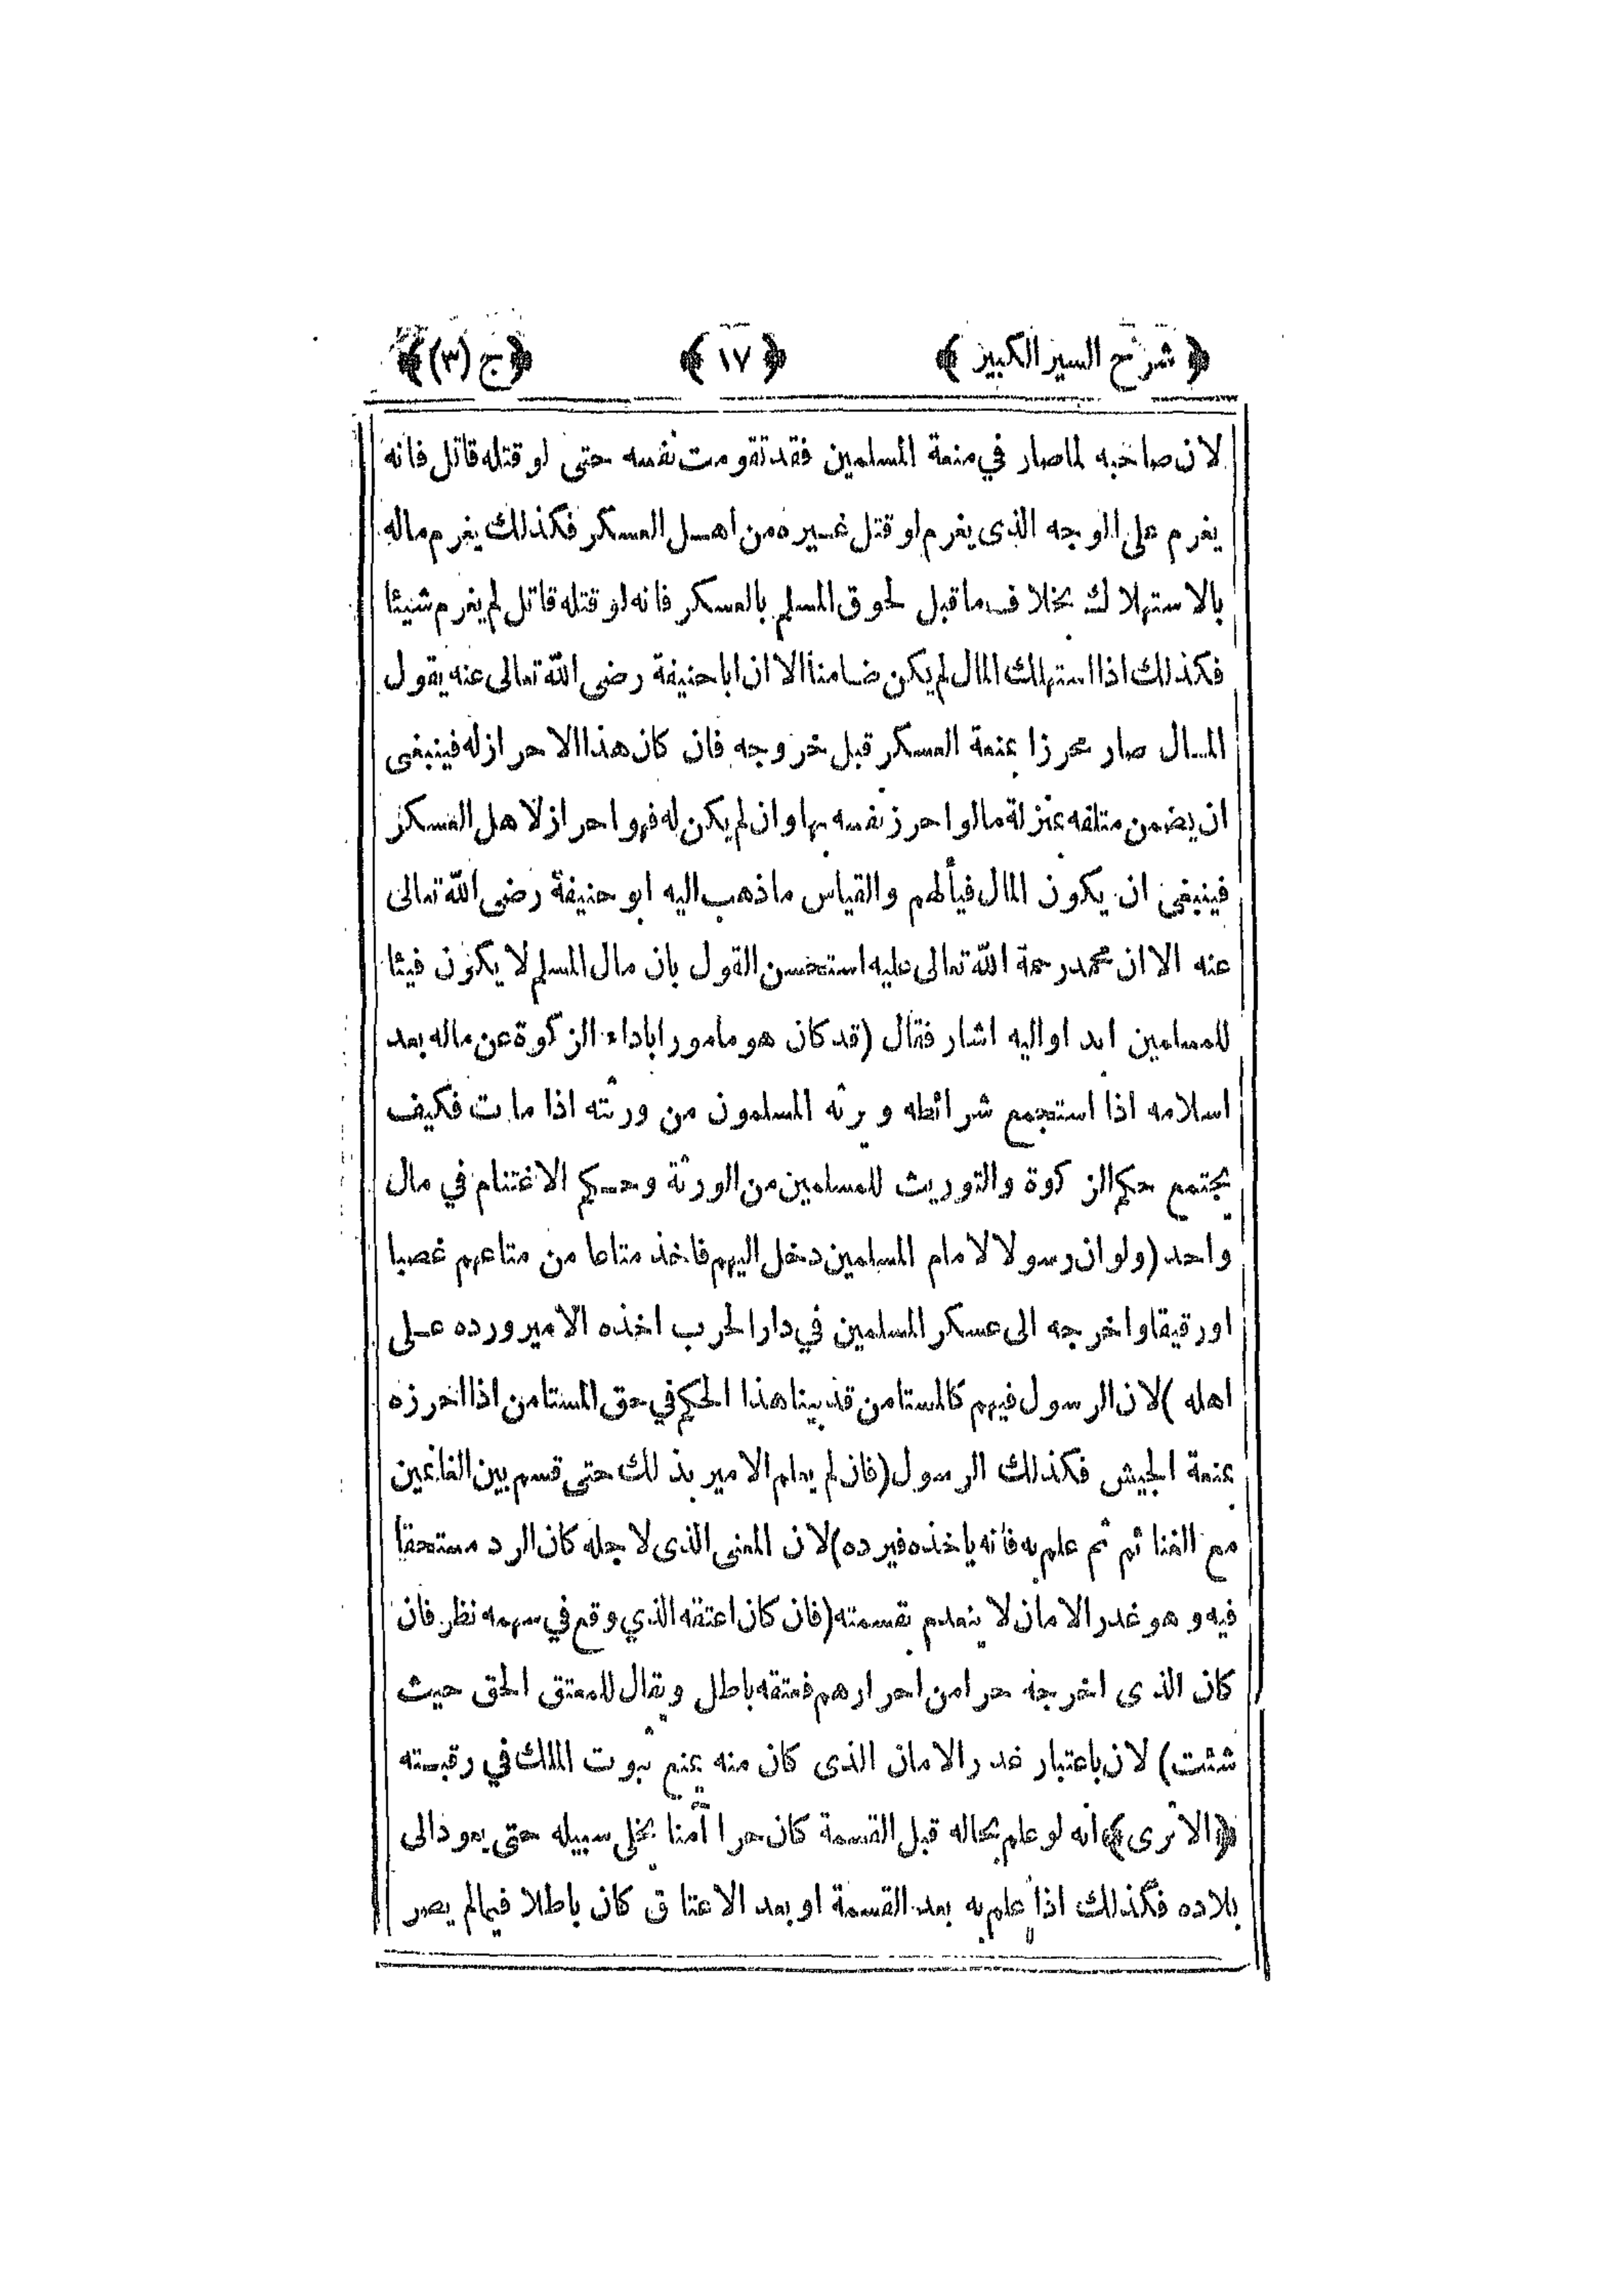 ﴿ شرح السير الكبير ﴾ ﴿ ١٧ ﴾ ﴿ ج (٣) ﴾
لان صاحبه لما صار في منعة المسلمين فقد تقومت نفسه حتى لو قتله قاتل فانه
يغرم على الوجه الذى يغرم لو قتل غيره من اهل العسكر فكذلك يغرم ماله
بالاستهلاك بخلاف ما قبل لحوق المسلم بالعسكر فانه لو قتله قاتل لم يغرم شيئا
فكذلك اذا استهلك المال لم يكن ضامنا الا ان ابا حنيفة رضى الله تعالى عنه يقول
المال صار محرزا بمنعة العسكر قبل خروجه فان كان هذا الاحراز له فينبغى
ان يضمن متلفه بمنزلة ما لو احرز نفسه بها وان لم يكن له فهو احراز لاهل العسكر
فينبغي ان يكون المال فيألهم والقياس ما ذهب اليه ابو حنيفة رضى الله تعالى
عنه الا ان محمد رحمة الله تعالى عليه استحسن القول بان مال المسلم لا يكون فيئا
للمسلمين ابدا واليه اشار فقال (قد كان هو مامورا باداء الزكوة عن ماله بعد
اسلامه اذا استجمع شرائطه ويرثه المسلمون من ورثته اذا مات فكيف
يجتمع حكم الزكوة والتوريث للمسلمين من الورثة وحكم الاغتنام في مال
واحد (ولو ان رسولا لامام المسلمين دخل اليهم فاخذ متاعا من متاعهم غصبا
او رقيقا واخرجه الى عسكر المسلمين في دار الحرب اخذه الامير ورده على
اهله )لان الرسول فيهم كالمستامن قد بينا هذا الحكم في حق المستامن اذا احرزه
بمنعة الجيش فكذلك الرسول(فان لم يعلم الامير بذلك حتى قسم بين الغانمين
مع الغنائم ثم علم به فانه ياخذه فيرده)لان المعنى الذى لاجله كان الرد مستحقا
فيه وهو غدر الامان لا ينعدم بقسمته(فان كان اعتقه الذي وقع في سهمه نظر فان
كان الذى اخرجه حرا من احرارهم فعتقه باطل ويقال للمعتق الحق حيث
شئت) لان باعتبار غدر الامان الذى كان منه يمنع ثبوت الملك في رقبته
﴿الاترى﴾انه لو علم بحاله قبل القسمة كان حرا آمنا يخلى سبيله حتى يعود الى
بلاده فكذلك اذا علم به بعد القسمة او بعد الاعتاق كان باطلا فيما لم يصر